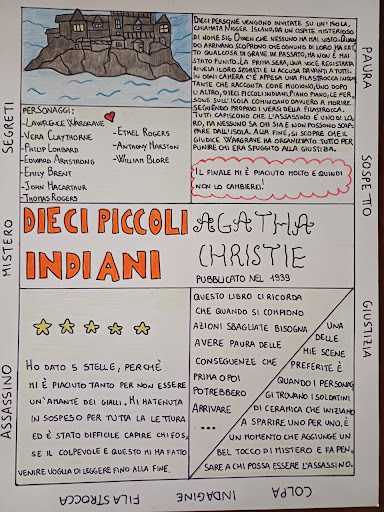 DIECI PERSONE VENGONO INVITATE SU UN'ISOLA,
CHIAMATA NIGGER ISLAND, DA UN OSPITE MISTERIOSO
DI NOME SIG. OWEN CHE NESSUNO HA MAI VISTO. QUAN
DO ARRIVANO, SCOPRONO CHE OGNUNO DI LORO HA FAT
TO QUALCOSA DI GRAVE IN PASSATO, MA NON È MAI
STATO PUNITO. LA PRIMA SERA, UNA VOCE REGISTRATA
RIVELA I LORO SEGRETI E LI ACCUSA DAVANTI A TUTTI.
IN OGNI CAMERA C'È APPESA UNA FILASTROCCA INQUIE
TANTE CHE RACCONTA COME MUOIONO, UNO DOPO
L'ALTRO, DIECI PICCOLI INDIANI. PIANO PIANO, LE PER,
SONE SULL'ISOLA COMINCIANO DAVVERO A MORIRE,
SEGUENDO PROPRIO I VERSI DELLA FILASTROCCA.
TUTTI CAPISCONO CHE L'ASSASSINO È UNO DI LO,
RO, MA NESSUNO SA CHI SIA E NON POSSONO SCAP,
PARE DALL'ISOLA. ALLA FINE, SI SCOPRE CHE IL
GIUDICE WARGRAVE HA ORGANIZZATO TUTTO PER
PUNIRE CHI ERA SFUGGITO ALLA GIUSTIZIA.
IL FINALE MI È PIACIUTO MOLTO E QUINDI
NON LO CAMBIEREI.
PERSONAGGI:
-LAWRENCE WARGRAVE
-VERA CLAYTHORNE
-PHILIP LOMBARD
-EDWARD ARMSTRONG
-EMILY BRENT
-JOHN MACARTHUR
-THOMAS ROGERS
-ETHEL ROGERS
-ANTHONY MARSTON
-WILLIAM BLORE
DIECI PICCOLI
INDIANI
AGATHA
CHRISTIE
PUBBLICATO NEL 1939
HO DATO 5 STELLE, PERCHÈ
MI È PIACIUTO TANTO PER NON ESSERE
UN'AMANTE DEI GIALLI. MI HA TENUTA
IN SOSPESO PER TUTTA LA LETTURA
ED È STATO DIFFICILE CAPIRE CHI FOS,
SE IL COLPEVOLE E QUESTO MI HA FATTO
VENIRE VOGLIA DI LEGGERE FINO ALLA FINE.
QUESTO LIBRO CI RICORDA
CHE QUANDO SI COMPIONO
AZIONI SBAGLIATE BISOGNA
AVERE PAURA DELLE
CONSEGUENZE CHE
PRIMA O POI
POTREBBERO
ARRIVARE
...
UNA
DELLE
MIE SCENE
PREFERITE È
QUANDO I PERSONAG
GI TROVANO I SOLDATINI
DI CERAMICA CHE INIZIANO
A SPARIRE UNO PER UNO, È
UN MOMENTO CHE AGGIUNGE UN
BEL TOCCO DI MISTERO E FA PEN,
SARE A CHI POSSA ESSERE L'ASSASSINO.
SEGRETI
MISTERO
ASSASSINO
PAURA
SOSPETTO
GIUSTIZIA
FILASTROCCA
INDAGINE
COLPA